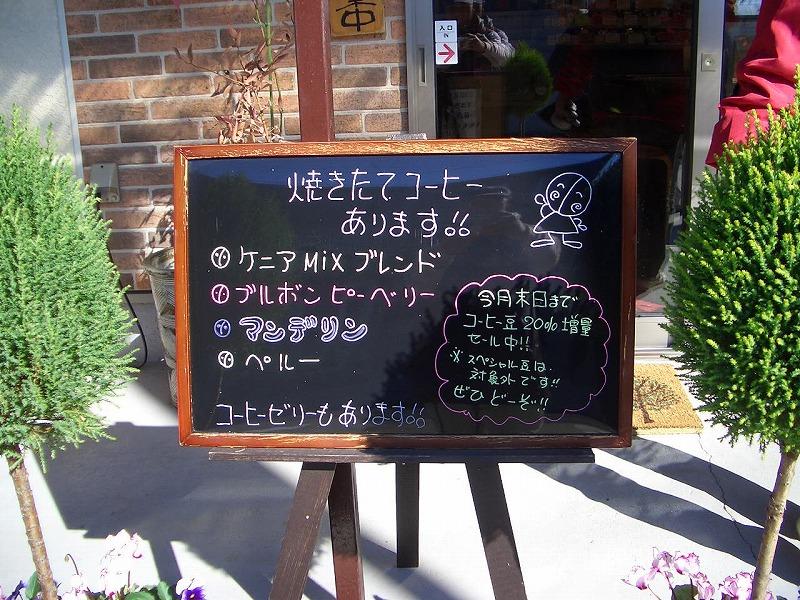 入口
IN
焼きたてコーヒー
あります!!
ケニアMiXブレンド
ブルボンピーベリー
マンデリン
ペルー
コーヒーゼリーもあります!!
今月末日まで
コーヒー豆20%増量
セール中!!
※スペシャル豆は
対象外です!!
ぜひどーぞ!!